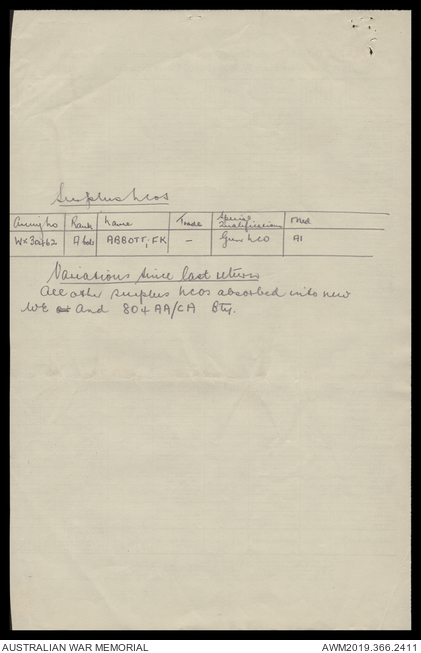 Surplus NCOs
Army No Rank Name Trade Special Qualifications Med
ABBOTT, FK – Gun NCO A1
Variations since last return
All other surplus NCOs absorbed into new
WE and 804 AA/CA Bty.
AUSTRALIAN WAR MEMORIAL AWM2019.366.2411